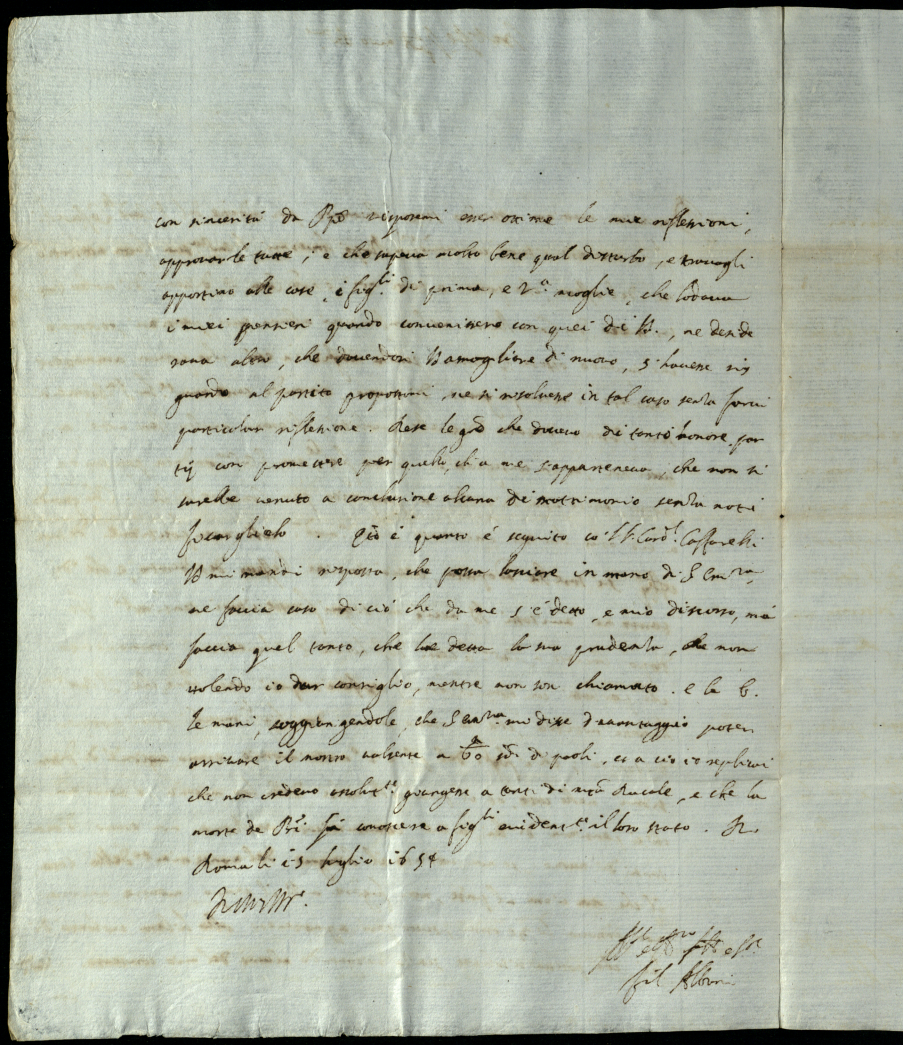 con sincerità da risposemi esser ottime le mie riflessioni,
approvarle tutte, e che sapeva molto bene qual disturbo, e travagli
apportino alle case, i figli di prima, e 2a moglie, che lodava
i miei pensieri quando convenissero con quei di V.S., ne deside
rava altro, che dovendosi V.S. amogliare di nuovo, s'havesse rig
guardo al partito propostomi, ne si risolvesse in tal caso senza farvi
particolar riflessione. Rese le che dovevo di tanto honore par
tij con promettere per quello, ch'a me s'apparteneva, che non si
sarebbe venuto a conclusione alcuna di matrimonio senza noti
ficarglielo. è quanto è seguito co'l S.r Card.l Caffarelli
V.S. mi mandi risposta, che possa lasciare in mano di S. Em.za,
ne faccia caso di ciò che da me s'è detto, e mio discorso, mà
faccia quel tanto, che le detta la sua prudenza, che non
volendo io dar consiglio, mentre non son chiamato. e le b.
le mani, soggiongendole, che S. Em.za mi disse d'avantaggio poter
arrivare il nostro valsente a 60 di paoli, et a ciò io replicai
che non credevo assolut.te giungesse a tanto di Ducale, e che la
morte de fà conoscere a figli evident.te il loro stato.
Roma li 15 luglio 1654